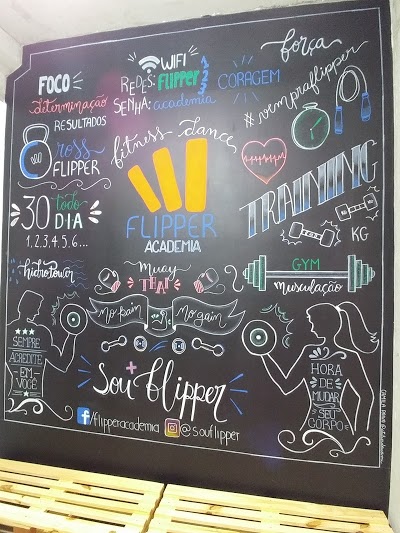 FOCO
determinação
RESULTADOS
WIFI
REDES: flipper 1
2
3
SENHA: academia
força
CORAGEM
#vempraflipper
cross
FLIPPER
fitness - dance
TRAINING
30 todo
DIA
1,2,3,4,5,6...
FLIPPER
ACADEMIA
KG
hidropower
muay
THAI
GYM
musculação
no pain
no gain
SEMPRE
ACREDITE
EM
VOCÊ
+
sou flipper
HORA
DE
MUDAR
SEU
CORPO
f/flipperacademia
@souflipper